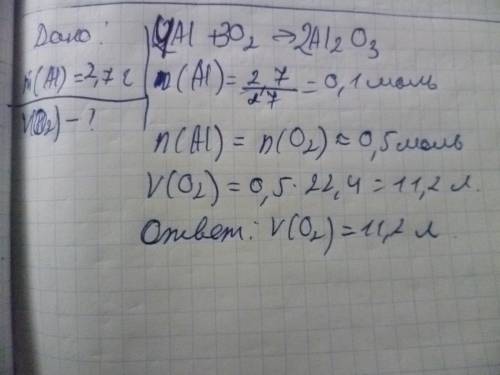 Дано:
m(Al)=2,7 г
V(O₂) - ?
4Al + 3O₂ → 2Al₂O₃
n(Al) = 2,7/27 = 0,1 моль
n(Al) = n(O₂) ≈ 0,5 моль
V(O₂) = 0,5 · 22,4 = 11,2 л.
Ответ: V(O₂) = 11,2 л.